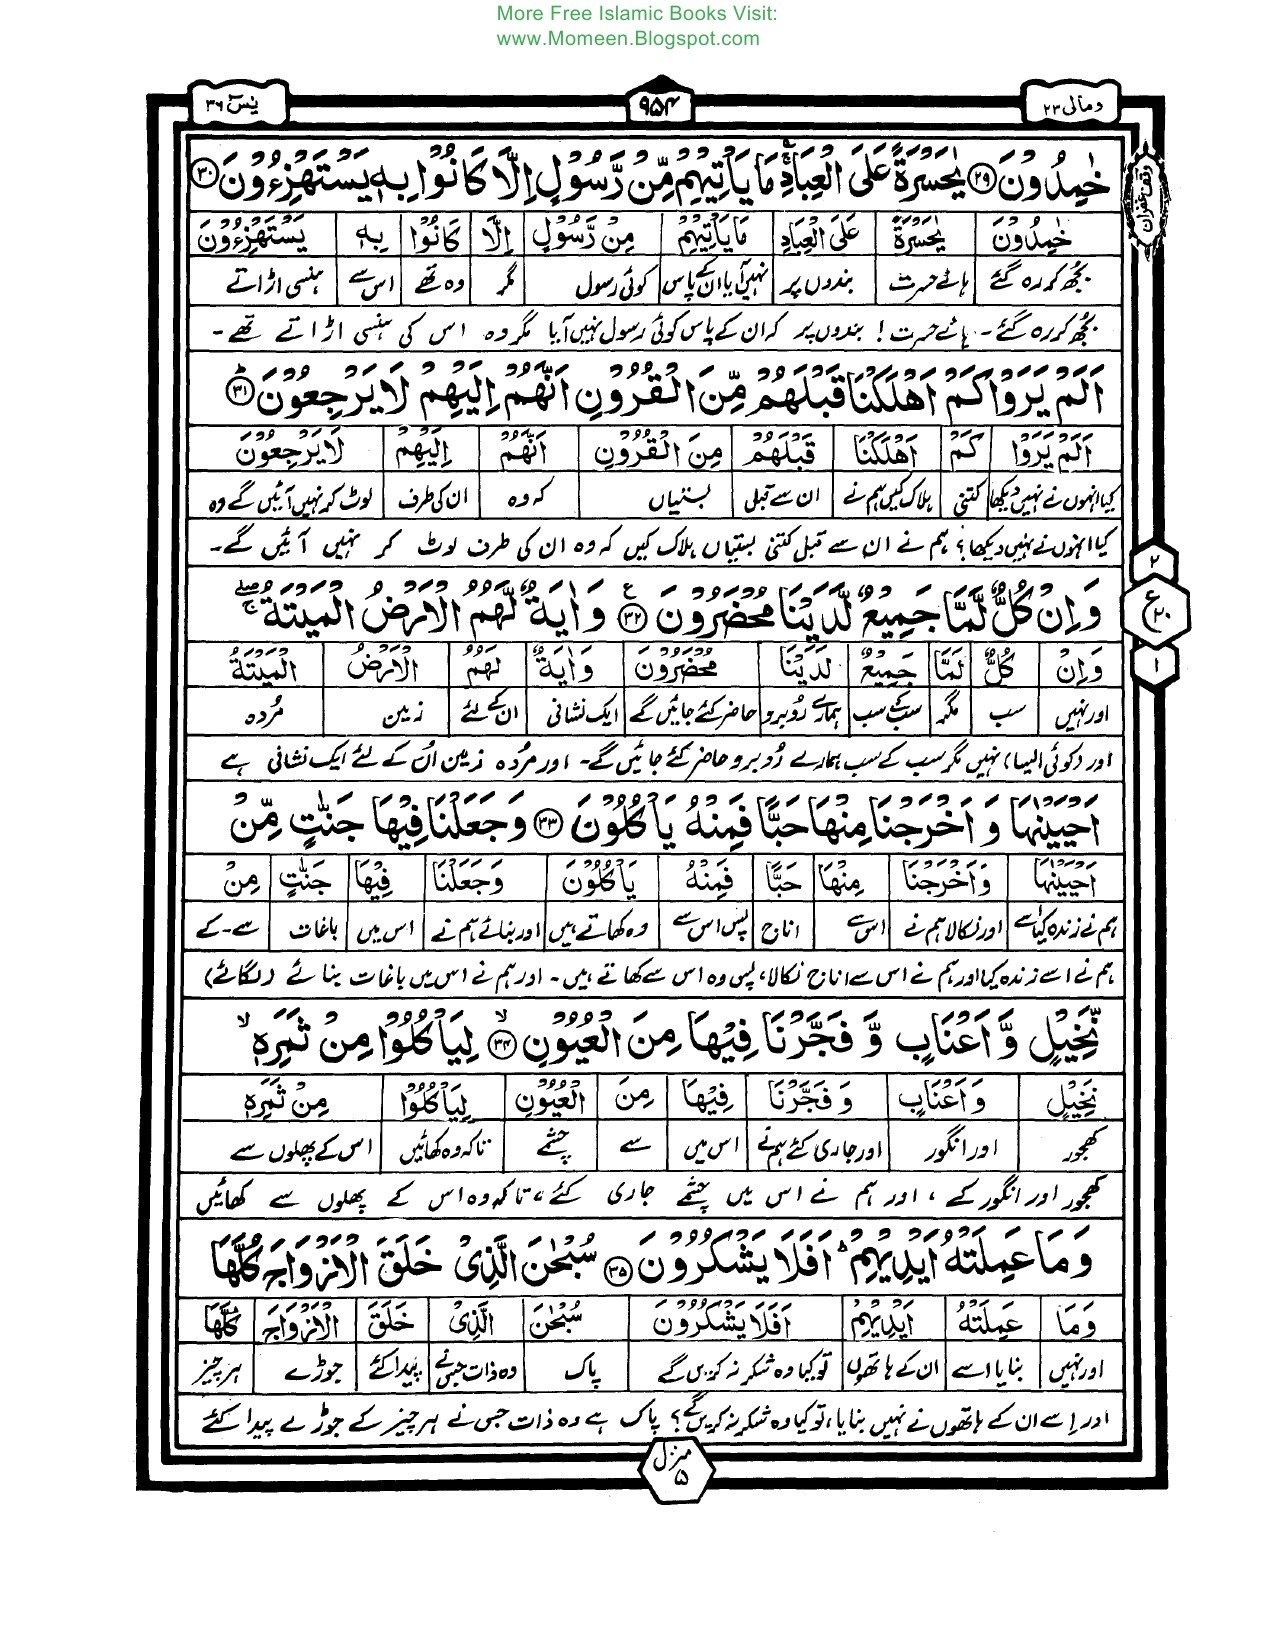 More Free Islamic Books Visit:
www.Momeen.Blogspot.com
ومالی ۲۳
۹۵۴
یٰسٓ ۳۶
خٰمِدُوْنَ ۲۹ یٰحَسْرَةً عَلَی الْعِبَادِ مَا یَاْتِیْهِمْ مِّنْ رَّسُوْلٍ اِلَّا كَانُوْا بِهٖ یَسْتَهْزِءُوْنَ ۳۰
خٰمِدُوْنَ یٰحَسْرَةً عَلَی الْعِبَادِ مَا یَاْتِیْهِمْ مِنْ رَّسُوْلٍ اِلَّا كَانُوْا بِهٖ یَسْتَهْزِءُوْنَ
بجھ کر رہ گئے ہائے حسرت بندوں پر نہیں آیا ان کے پاس کوئی رسول مگر وہ تھے اس سے ہنسی اڑاتے
بجھ کر رہ گئے۔ ہائے حسرت! بندوں پر کہ ان کے پاس کوئی رسول نہیں آیا مگر وہ اس کی ہنسی اڑاتے تھے۔
اَلَمْ یَرَوْا كَمْ اَهْلَكْنَا قَبْلَهُمْ مِّنَ الْقُرُوْنِ اَنَّهُمْ اِلَیْهِمْ لَا یَرْجِعُوْنَ ۳۱
اَلَمْ یَرَوْا كَمْ اَهْلَكْنَا قَبْلَهُمْ مِنَ الْقُرُوْنِ اَنَّهُمْ اِلَیْهِمْ لَا یَرْجِعُوْنَ
کیا انہوں نے نہیں دیکھا کتنی ہلاک کیں ہم نے ان سے قبل بستیاں کہ وہ ان کی طرف لوٹ کر نہیں آئیں گے وہ
کیا انہوں نے نہیں دیکھا؟ ہم نے ان سے قبل کتنی بستیاں ہلاک کیں کہ وہ ان کی طرف لوٹ کر نہیں آئیں گے۔
وَاِنْ كُلٌّ لَّمَّا جَمِیْعٌ لَّدَیْنَا مُحْضَرُوْنَ ۳۲ وَاٰیَةٌ لَّهُمُ الْاَرْضُ الْمَیْتَةُ
وَاِنْ كُلٌّ لَمَّا جَمِیْعٌ لَدَیْنَا مُحْضَرُوْنَ وَاٰیَةٌ لَهُمْ الْاَرْضُ الْمَیْتَةُ
اور نہیں سب مگر سب کے سب ہمارے رُوبرو حاضر کئے جائیں گے ایک نشانی ان کے لئے زمین مُردہ
اور (کوئی ایسا) نہیں مگر سب کے سب ہمارے رُوبرو حاضر کئے جائیں گے۔ اور مُردہ زمین اُن کے لئے ایک نشانی ہے
اَحْیَیْنٰهَا وَ اَخْرَجْنَا مِنْهَا حَبًّا فَمِنْهُ یَاْكُلُوْنَ ۳۳ وَجَعَلْنَا فِیْهَا جَنّٰتٍ مِّنْ
اَحْیَیْنٰهَا وَاَخْرَجْنَا مِنْهَا حَبًّا فَمِنْهُ یَاْكُلُوْنَ وَجَعَلْنَا فِیْهَا جَنّٰتٍ مِنْ
ہم نے زندہ کیا اسے اور نکالا ہم نے اس سے اناج پس اس سے وہ کھاتے ہیں اور بنائے ہم نے اس میں باغات سے۔کے
ہم نے اسے زندہ کیا اور ہم نے اس سے اناج نکالا، پس وہ اس سے کھاتے ہیں۔ اور ہم نے اس میں باغات بنائے (لگائے)
نَّخِیْلٍ وَّ اَعْنَابٍ وَّ فَجَّرْنَا فِیْهَا مِنَ الْعُیُوْنِ ۳۴ لِیَاْكُلُوْا مِنْ ثَمَرِهٖ
نَخِیْلٍ وَاَعْنَابٍ وَفَجَّرْنَا فِیْهَا مِنَ الْعُیُوْنِ لِیَاْكُلُوْا مِنْ ثَمَرِهٖ
کھجور اور انگور اور جاری کئے ہم نے اس میں سے چشمے تاکہ وہ کھائیں اس کے پھلوں سے
کھجور اور انگور کے، اور ہم نے اس میں چشمے جاری کئے، تاکہ وہ اس کے پھلوں سے کھائیں
وَمَا عَمِلَتْهُ اَیْدِیْهِمْ اَفَلَا یَشْكُرُوْنَ ۳۵ سُبْحٰنَ الَّذِیْ خَلَقَ الْاَزْوَاجَ كُلَّهَا
وَمَا عَمِلَتْهُ اَیْدِیْهِمْ اَفَلَا یَشْكُرُوْنَ سُبْحٰنَ الَّذِیْ خَلَقَ الْاَزْوَاجَ كُلَّهَا
اور نہیں بنایا اسے ان کے ہاتھوں تو کیا وہ شکر نہ کریں گے پاک وہ ذات جس نے پیدا کئے جوڑے ہر چیز
اور اسے ان کے ہاتھوں نے نہیں بنایا، تو کیا وہ شکر نہ کریں گے؟ پاک ہے وہ ذات جس نے ہر چیز کے جوڑے پیدا کئے
وقف غفران
۲
ع ۲۰
۱
منزل ۵